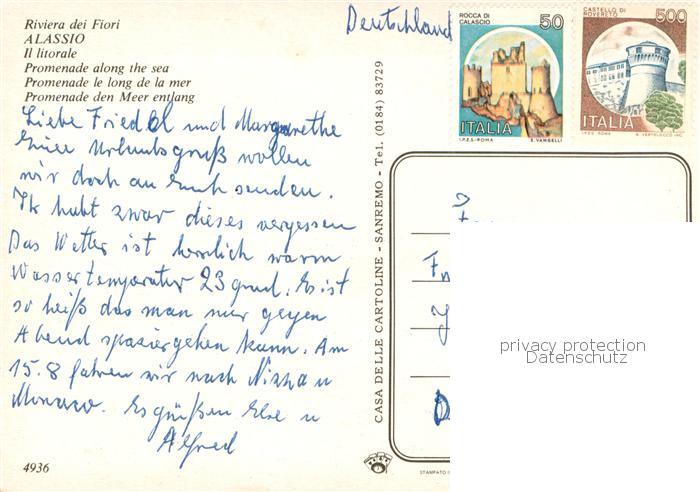 Riviera dei Fiori
ALASSIO
Il litorale
Promenade along the sea
Promenade le long de la mer
Promenade den Meer entlang
Liebe Friedel und Margarethe
Eine Urlaubsgruß wollen
wir doch an Euch senden.
Ihr habt zwar dieses vergessen
Das Wetter ist herrlich warm
Wassertemperatur 23 grad. Es ist
so heiß das man nur gegen
Abend spaziergehen kann. Am
15.8 fahren wir nach Nizza u
Monaco. Es grüßen Else u
Alfred
4936
CASA DELLE CARTOLINE - SANREMO - Tel. (0184) 83729
Deutschland
ROCCA DI CALASCIO 50
ITALIA
I.P.Z.S.-ROMA E. VANGELLI
CASTELLO DI ROVERETO 500
ITALIA
I.P.Z.S. ROMA
privacy protection
Datenschutz
STAMPATO I